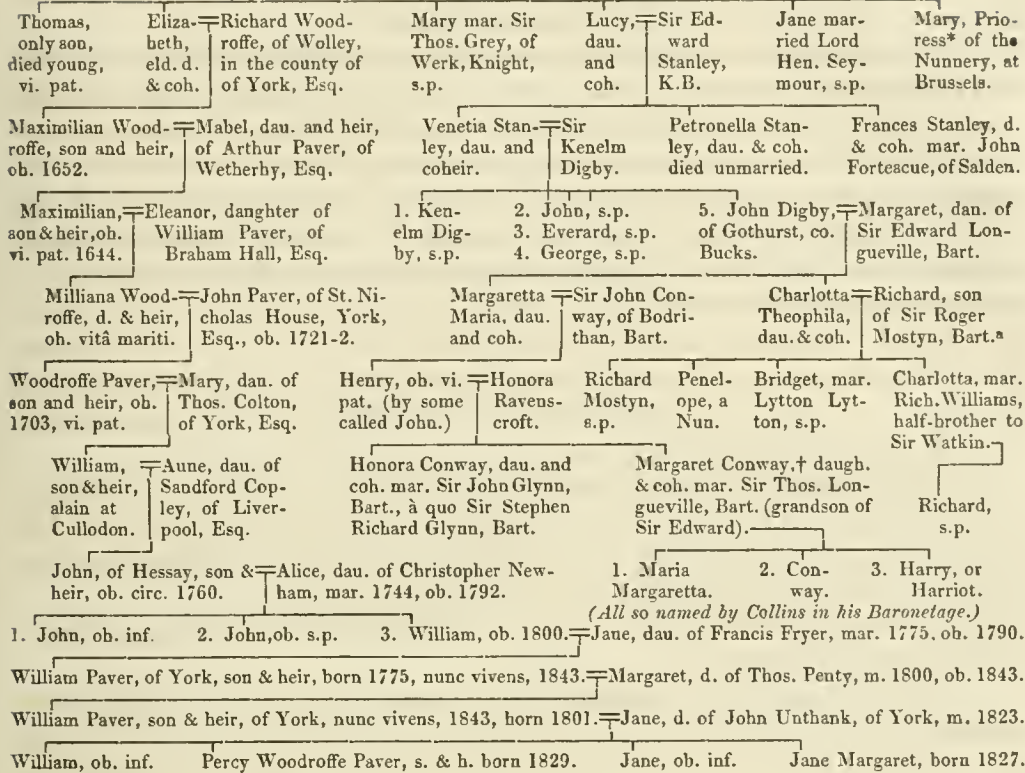 Thomas,
only son,
died young,
vi. pat.
Eliza-
beth,
eld. d.
& coh.
Richard Wood-
roffe, of Wolley,
in the county of
of York, Esq.
Mary mar. Sir
Thos. Grey, of
Werk, Knight,
s.p.
Lucy,
dau.
and
coh.
Sir Ed-
ward
Stanley,
K.B.
Jane mar-
ried Lord
Hen. Sey-
mour, s.p.
Mary, Prio-
ress* of the
Nunnery, at
Brussels.
Maximilian Wood-
roffe, son and heir,
ob. 1652.
Mabel, dau. and heir,
of Arthur Paver, of
Wetherby, Esq.
Venetia Stan-
ley, dau. and
coheir.
Sir
Kenelm
Digby.
Petronella Stan-
ley, dau. & coh.
died unmarried.
Frances Stanley, d.
& coh. mar. John
Fortescue, of Salden.
Maximilian,
son & heir, oh.
vi. pat. 1644.
Eleanor, danghter of
William Paver, of
Braham Hall, Esq.
1. Ken-
elm Dig-
by, s.p.
2. John, s.p.
3. Everard, s.p.
4. George, s.p.
5. John Digby,
of Gothurst, co.
Bucks.
Margaret, dan. of
Sir Edward Lon-
gueville, Bart.
Milliana Wood-
roffe, d. & heir,
oh. vitâ mariti.
John Paver, of St. Ni-
cholas House, York,
Esq., ob. 1721-2.
Margaretta
Maria, dau.
and coh.
Sir John Con-
way, of Bodri-
than, Bart.
Charlotta
Theophila,
dau. & coh.
Richard, son
of Sir Roger
Mostyn, Bart.a
Woodroffe Paver,
son and heir, ob.
1703, vi. pat.
Mary, dan. of
Thos. Colton,
of York, Esq.
Henry, ob. vi.
pat. (by some
called John.)
Honora
Ravens-
croft.
Richard
Mostyn,
s.p.
Penel-
ope, a
Nun.
Bridget, mar.
Lytton Lyt-
ton, s.p.
Charlotta, mar.
Rich. Williams,
half-brother to
Sir Watkin.
William,
son & heir,
slain at
Cullodon.
Aune, dau. of
Sandford Cop-
ley, of Liver-
pool, Esq.
Honora Conway, dau. and
coh. mar. Sir John Glynn,
Bart., à quo Sir Stephen
Richard Glynn, Bart.
Margaret Conway,† daugh.
& coh. mar. Sir Thos. Lon-
gueville, Bart. (grandson of
Sir Edward).
Richard,
s.p.
John, of Hessay, son &
heir, ob. circ. 1760.
Alice, dau. of Christopher New-
ham, mar. 1744, ob. 1792.
1. Maria
Margaretta.
2. Con-
way.
3. Harry, or
Harriot.
(All so named by Collins in his Baronetage.)
1. John, ob. inf. 2. John, ob. s.p. 3. William, ob. 1800. Jane, dau. of Francis Fryer, mar. 1775, ob. 1790.
William Paver, of York, son & heir, born 1775, nunc vivens, 1843. Margaret, d. of Thos. Penty, m. 1800, ob. 1843.
William Paver, son & heir, of York, nunc vivens, 1843, born 1801. Jane, d. of John Unthank, of York, m. 1823.
William, ob. inf. Percy Woodroffe Paver, s. & h. born 1829. Jane, ob. inf. Jane Margaret, born 1827.